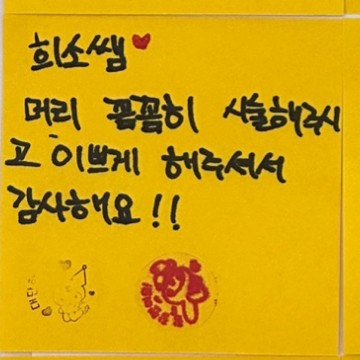 희소쌤
머리 꼼꼼히 시술해주시
고 이쁘게 해주셔서
감사해요!!